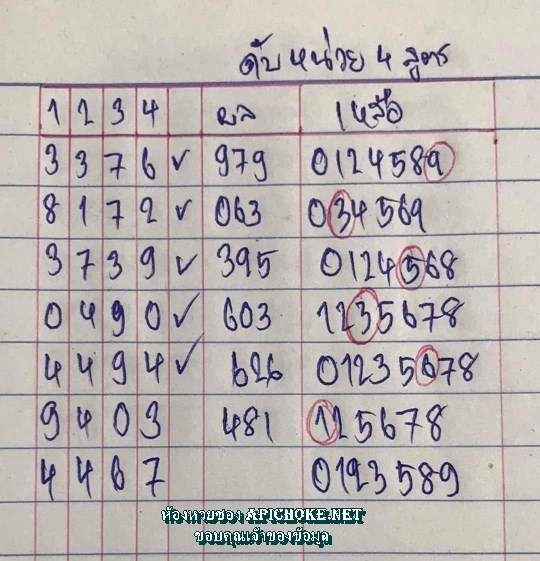 ดับหน่วย 4 สูตร
1 2 3 4 ผล เหลือ
3 3 7 6 ✓ 979 0124589
8 1 7 2 ✓ 063 034569
3 7 3 9 ✓ 395 0124568
0 4 9 0 ✓ 603 1235678
4 4 9 4 ✓ 626 01235678
9 4 0 3 481 125678
4 4 6 7 0123589
ห้องหวยของ APICHOKE.NET
ขอบคุณเจ้าของข้อมูล